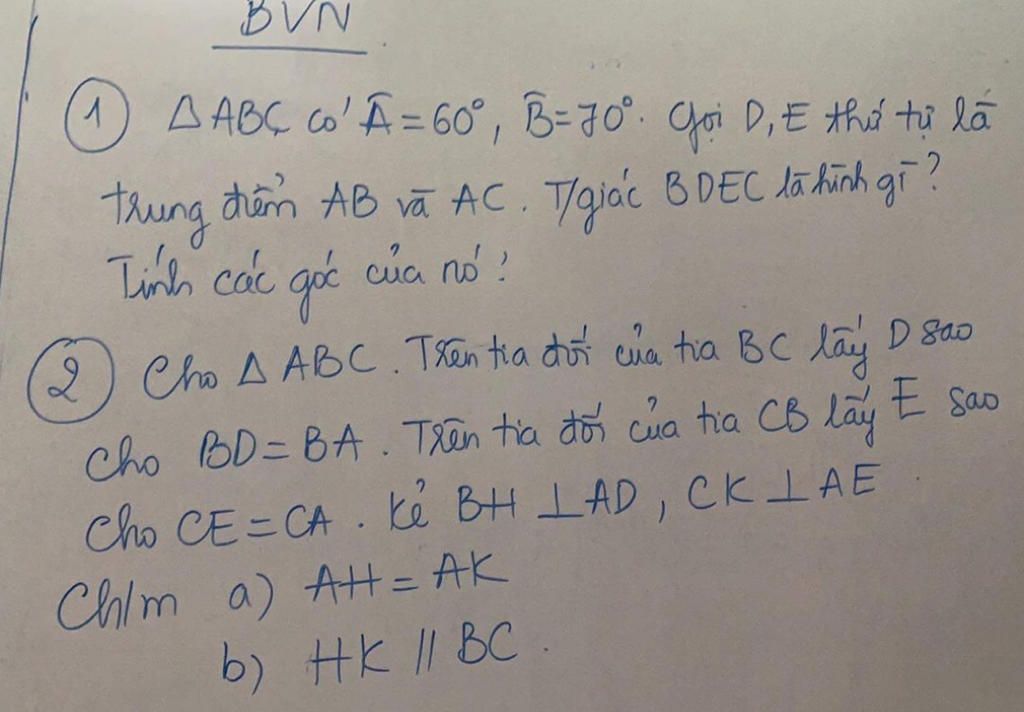 BVN
① △ABC có Â=60°, B̂=70°. Gọi D,E thứ tự là
trung điểm AB và AC. T/giác BDEC là hình gì?
Tính các góc của nó?
② Cho △ABC. Trên tia đối của tia BC lấy D sao
cho BD=BA. Trên tia đối của tia CB lấy E sao
cho CE=CA. Kẻ BH ⊥AD, CK⊥AE
Ch/m a) AH=AK
b) HK // BC.